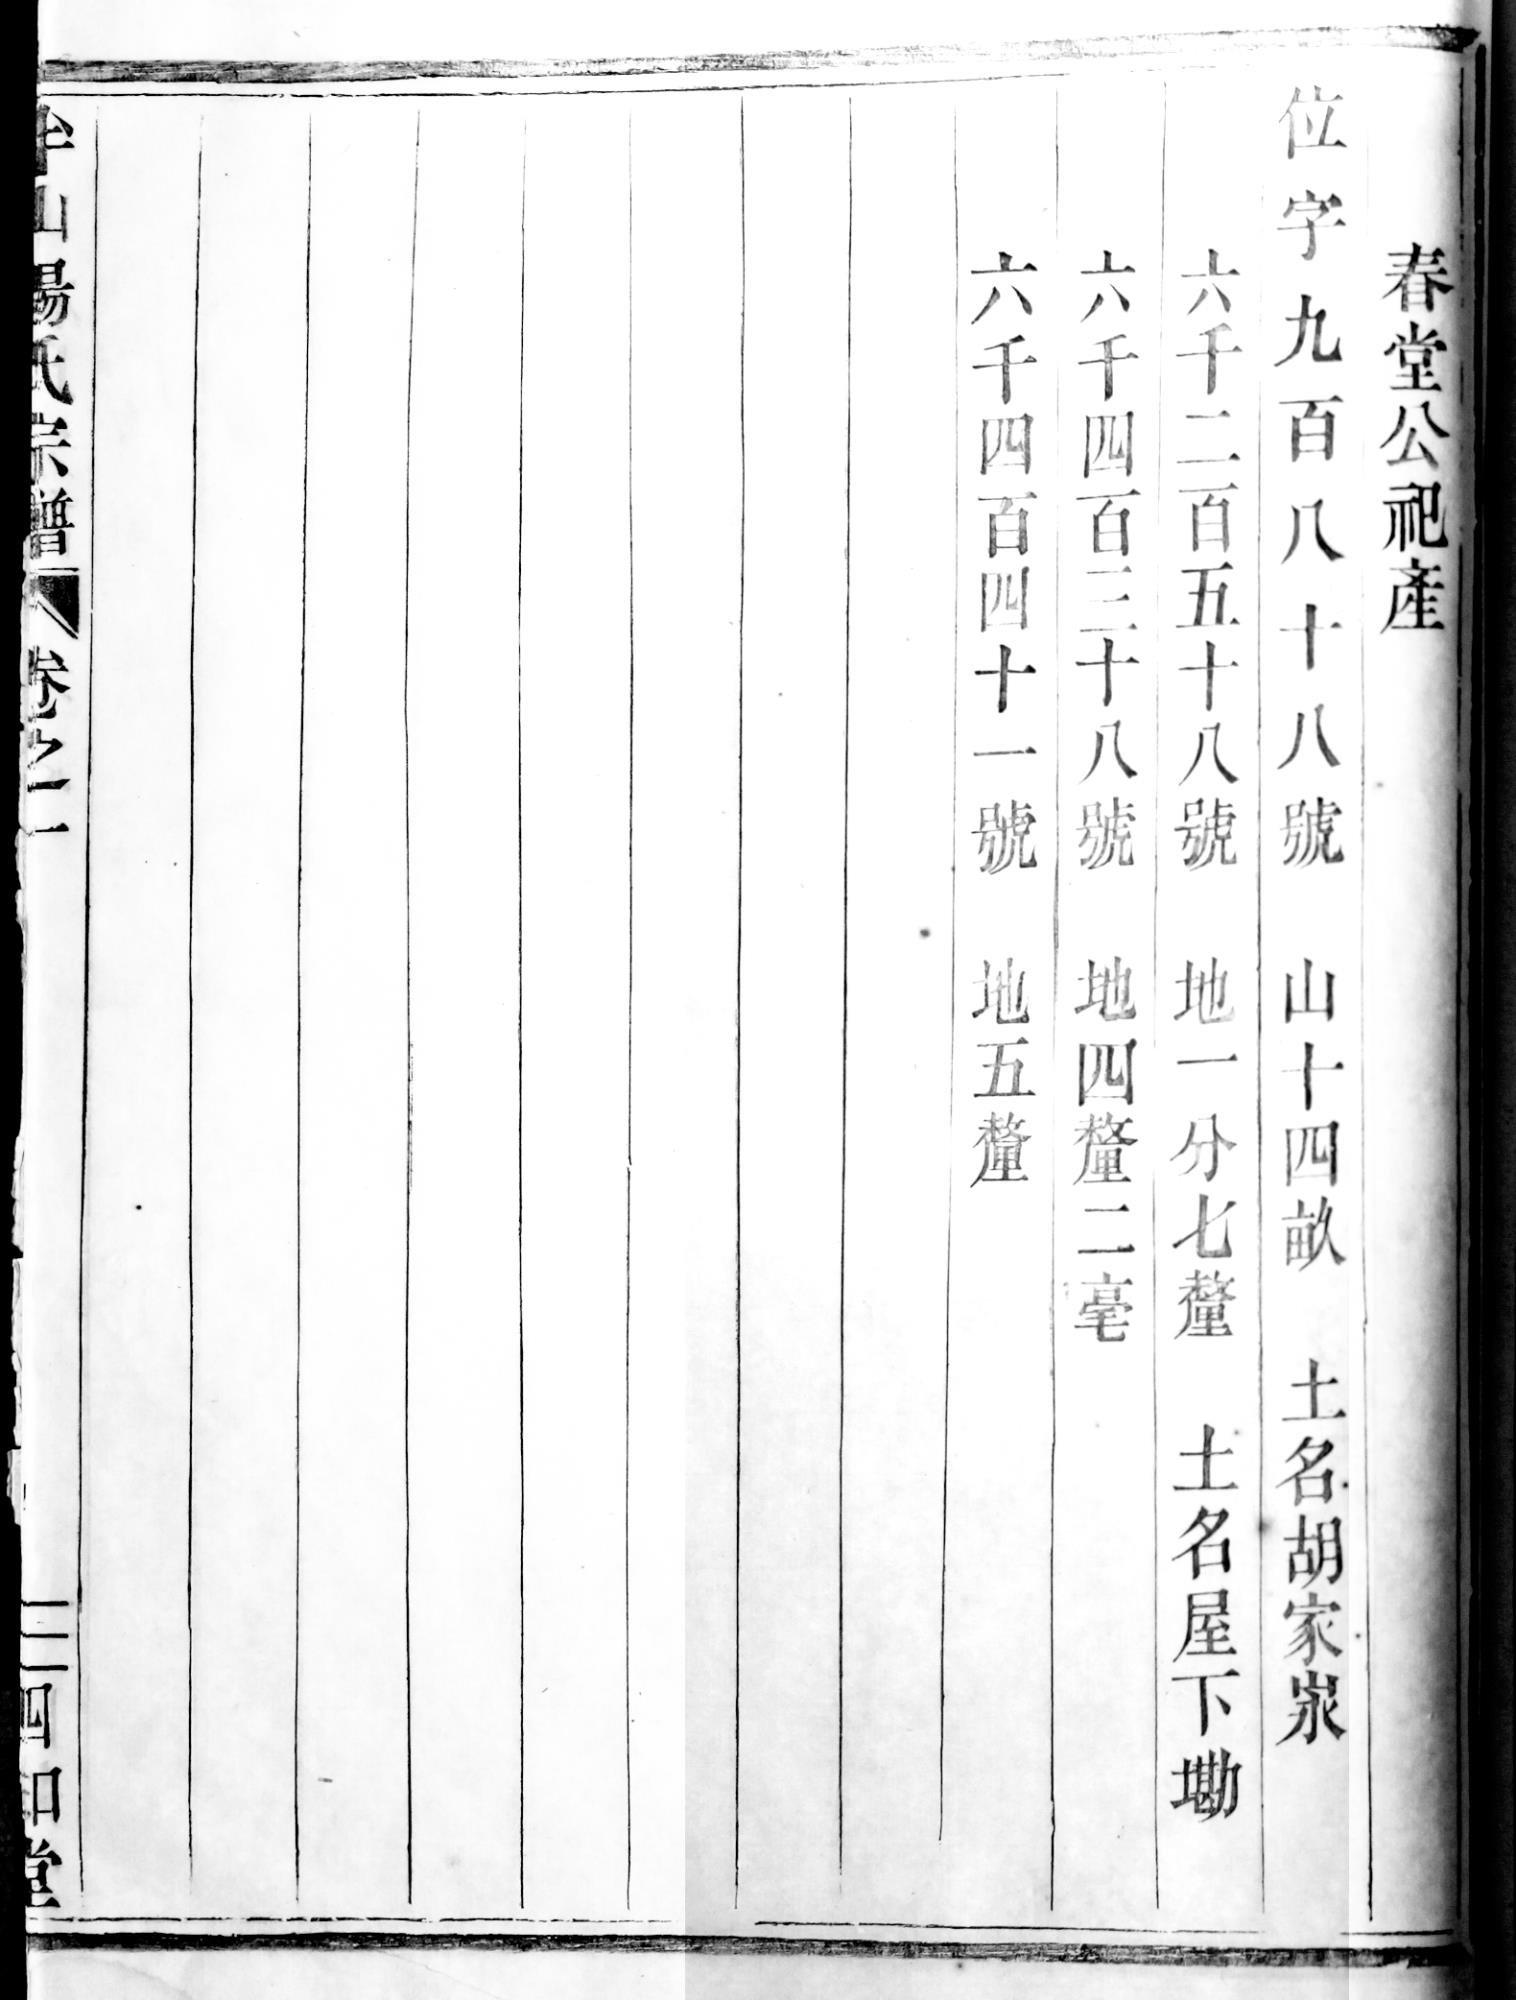 春堂公祀產
位字九百八十八號　山十四畝　土名胡家㟲
六千二百五十八號　地一分七釐　土名屋下墈
六千四百三十八號　地四釐二毫
六千四百四十一號　地五釐
山楊氏宗譜　卷之一　四知堂